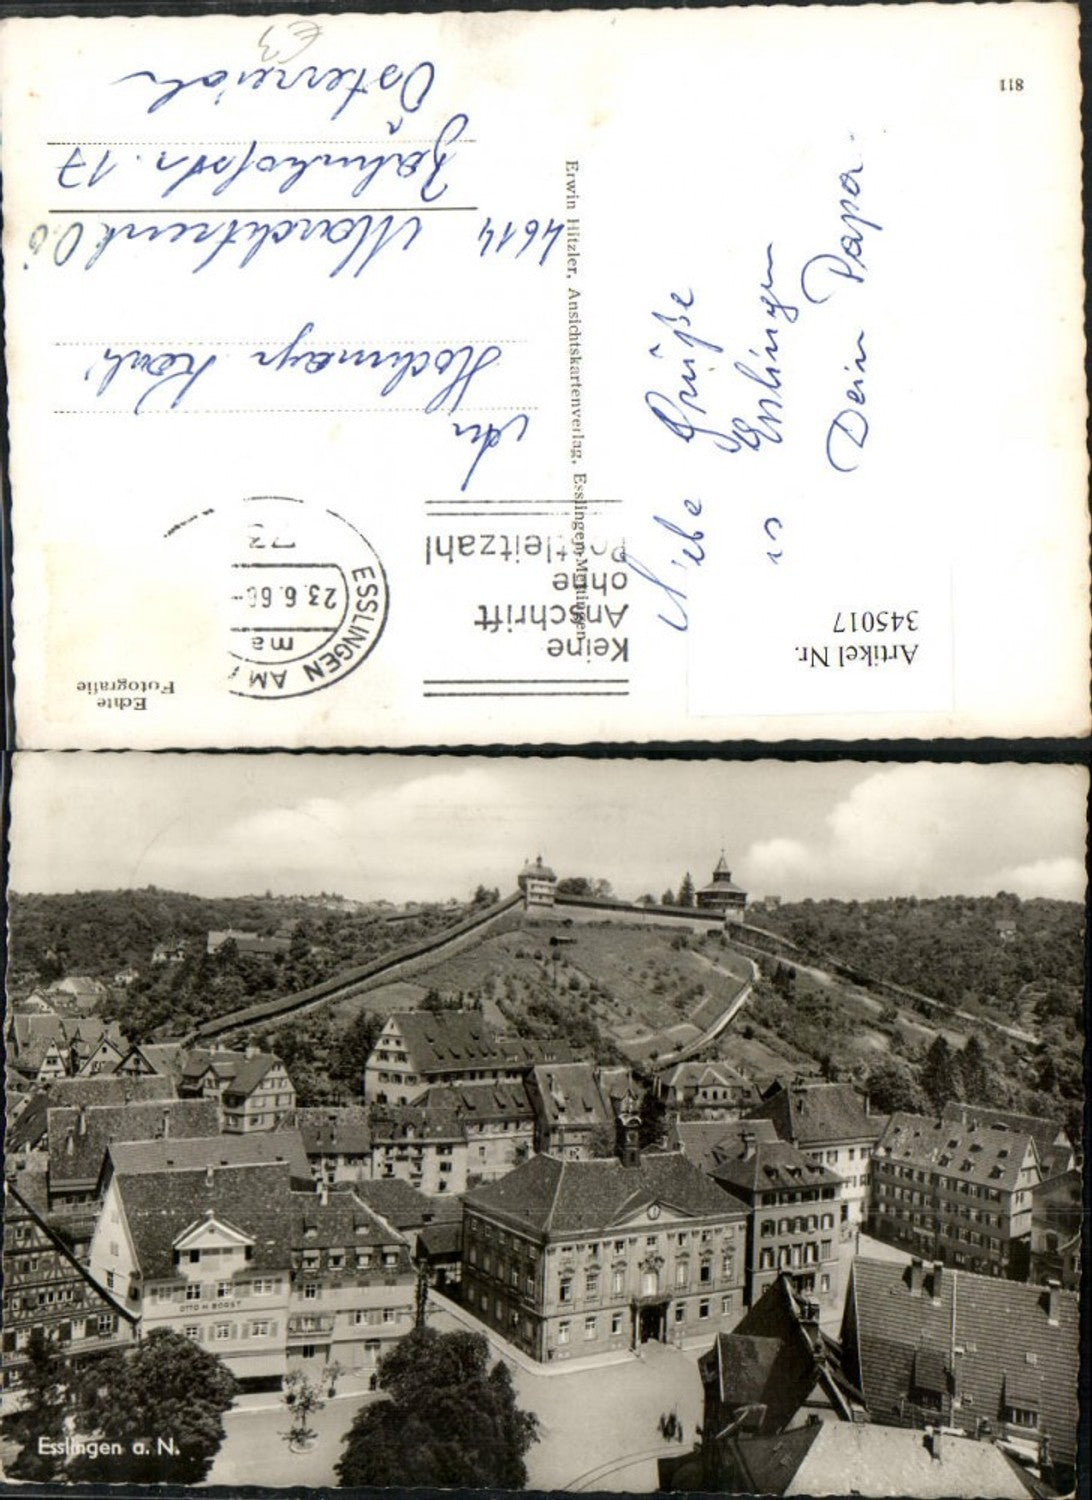 811
Liebe Grüße
aus Esslingen
Dein Papa.
Erwin Hitzler, Ansichtskartenverlag, Esslingen-Mettingen
Echte
Fotografie
ESSLINGEN AM
ma
23.6.66-
73
Keine
Anschrift
ohne
Postleitzahl
An
Hochmayr
4614 Marchtrenk OÖ
Bahnhofstr. 17
Österreich
€3
Artikel Nr.
345017
OTTO H BORST
Esslingen a. N.